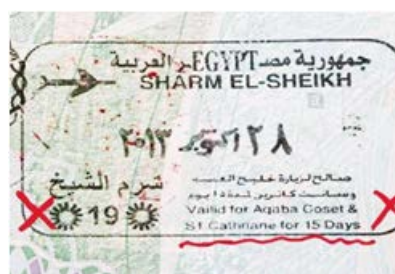 جمهورية مصر EGYPT العربية
SHARM EL-SHEIKH
٢٨ اكتوبر ٢٠١٣
صالح لزيارة خليج العقبة
شرم الشيخ
وسانت كاترين لمدة ١٥ يوم
19
Vailid for Aqaba Goset &
ST Cathriane for 15 Days